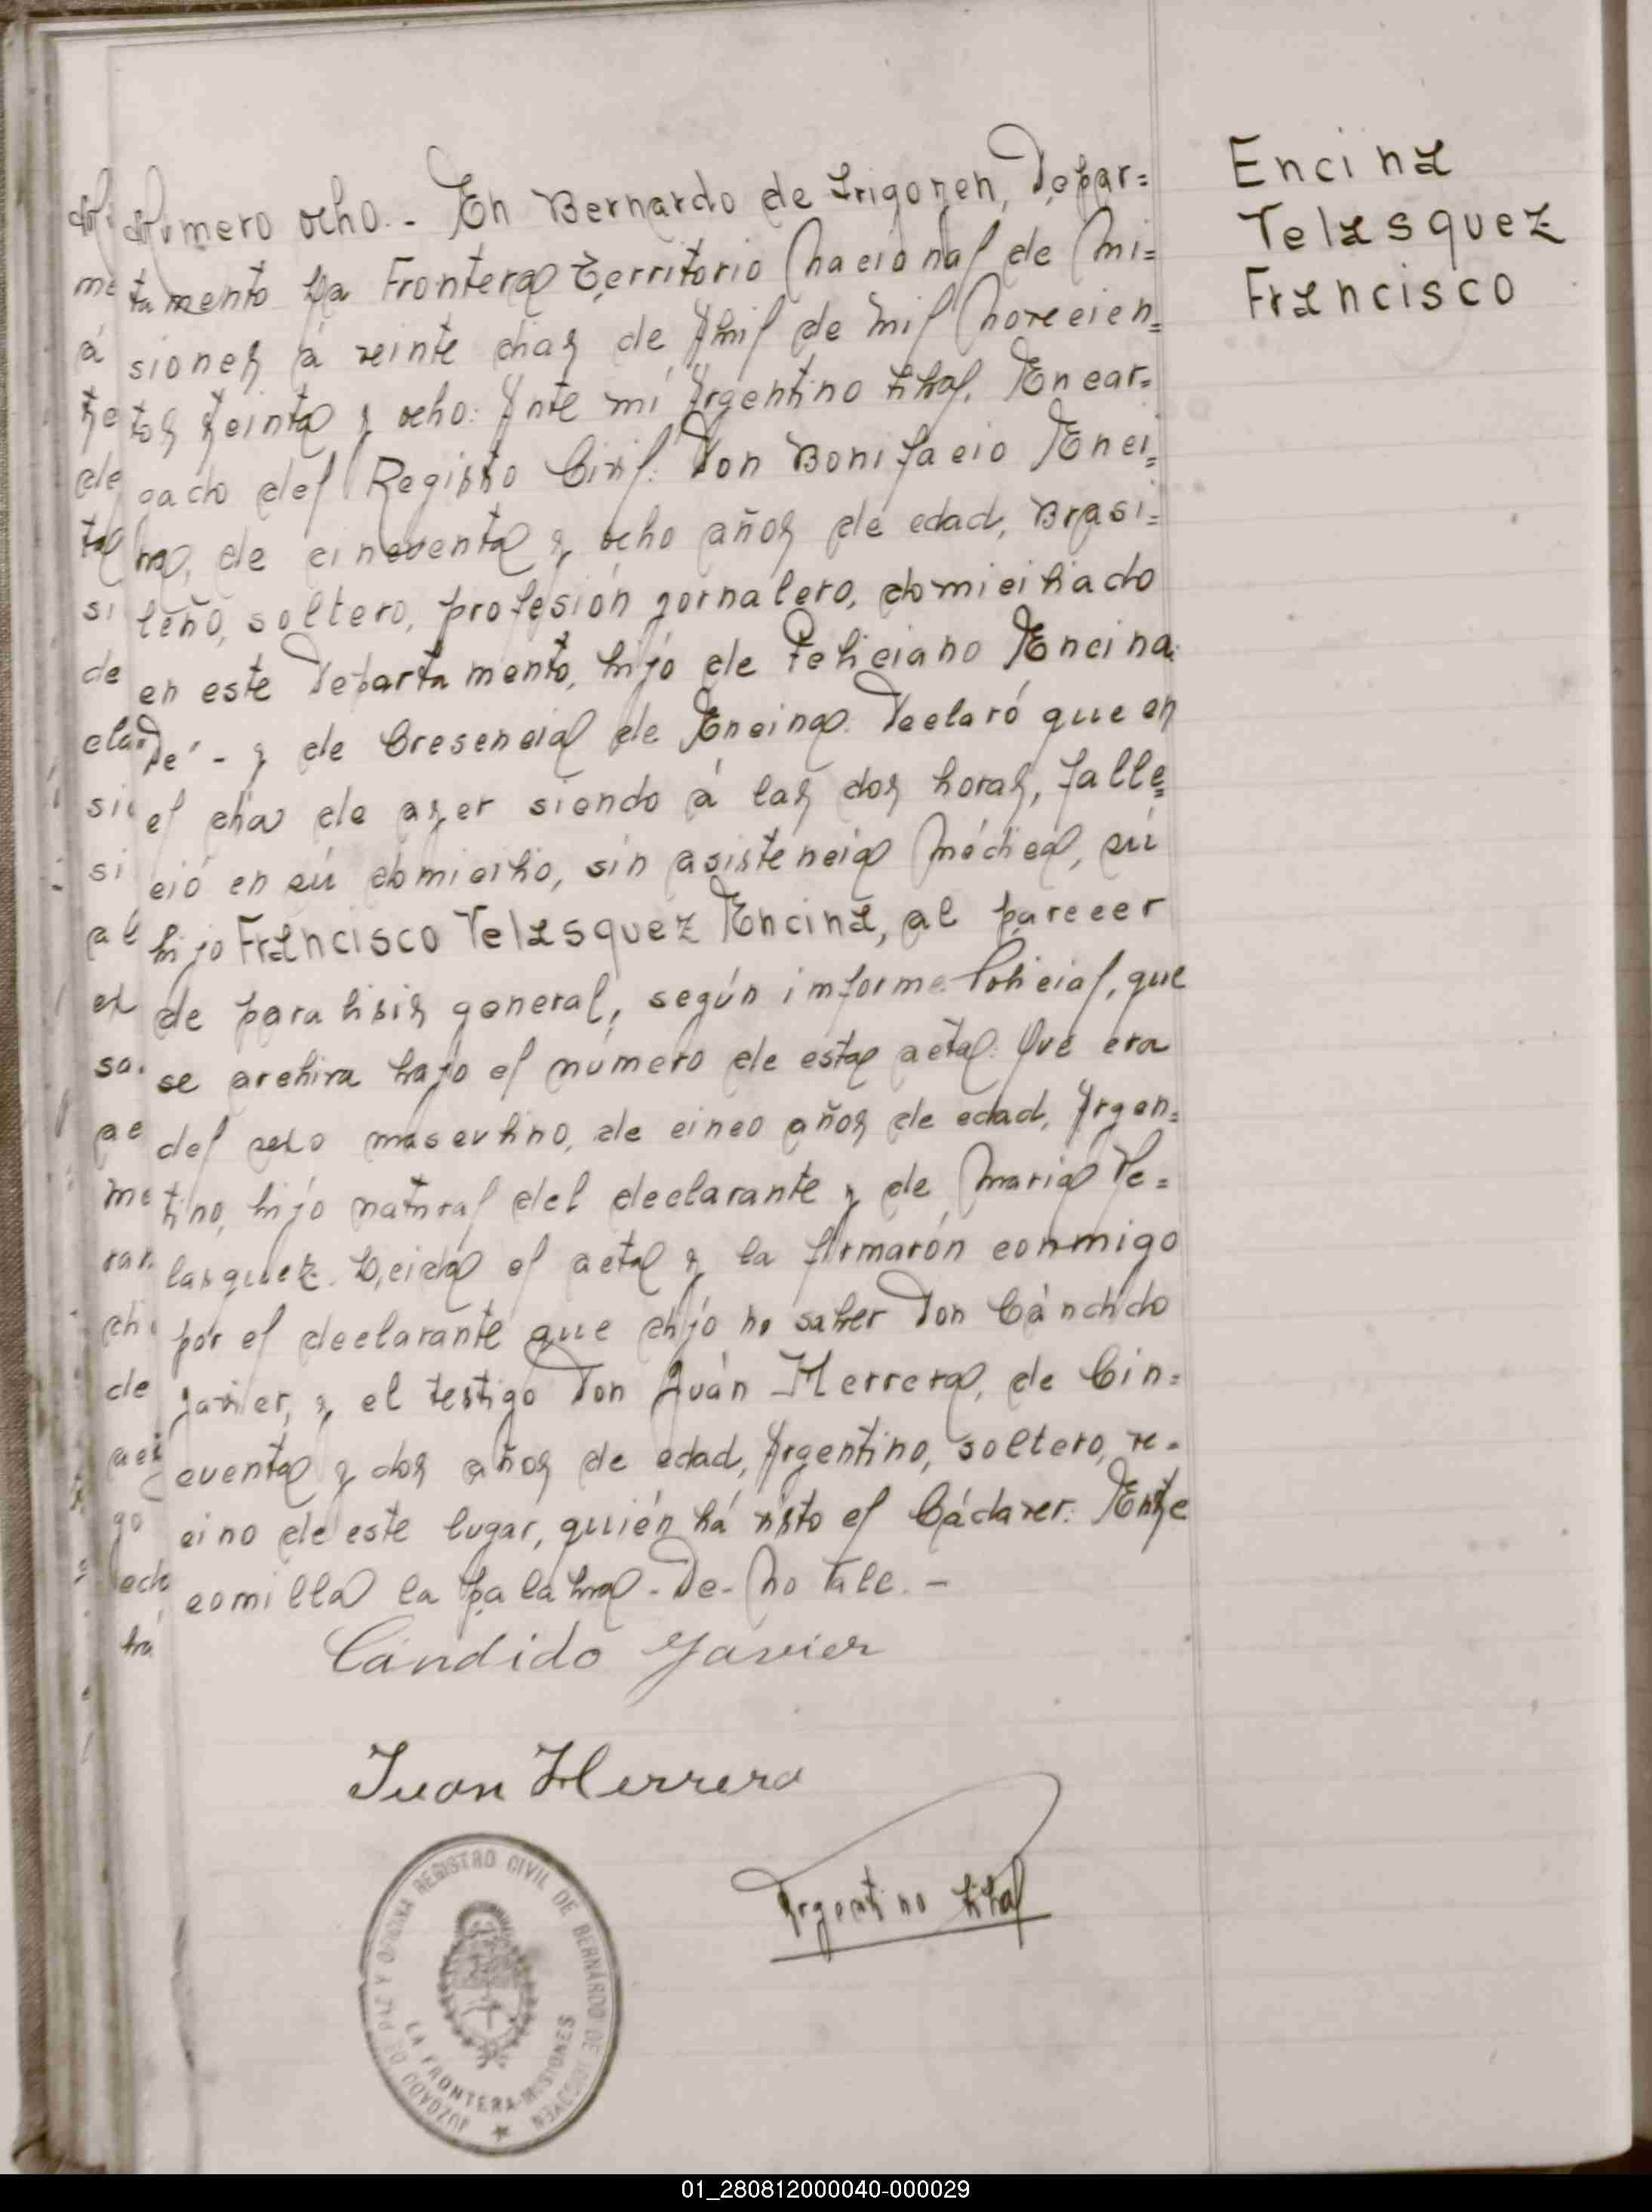 Encina
Velasquez
Francisco
Número ocho. - En Bernardo de Irigoyen, Depar=
tamento La Frontera Territorio Nacional de Mi=
siones á veinte dias de Abril de mil novecien=
tos treinta y ocho: Ante mí Argentino Vital, Encar=
gado del Registro Civil: Don Bonifacio Enci=
na, de cincuenta y ocho años de edad, Brasi=
leño, soltero, profesión jornalero, domiciliado
en este Departamento, hijo de Feliciano Encina.
"De" - y de Cresencia de Encina. Declaró que en
el dia de ayer siendo á las dos horas, falle=
ció en sú domicilio, sin asistencia Médica, sú
hijo Francisco Velasquez Encina, al parecer
de paralisis general, según imforme Policial, que
se archiva bajo el número de esta acta: Que era
del sexo masculino, de cinco años de edad, Argen=
tino, hijo natural del declarante y de Maria Ve=
lasquez. Leida el acta y la firmarón conmigo
por el declarante que dijo no saber Don Cándido
Javier, y el testigo Don Juán Herrera, de Cin=
cuenta y dos años de edad, Argentino, soltero, ve=
cino de este lugar, quién há visto el Cádaver: Entre
comilla la palabra - De - No Vale. -
Cándido Javier
Juan Herrera
Argentino Vital
JUZGADO DE PAZ Y OFICINA REGISTRO CIVIL DE BERNARDO DE IRIGOYEN
LA FRONTERA-MISIONES
01_280812000040-000029